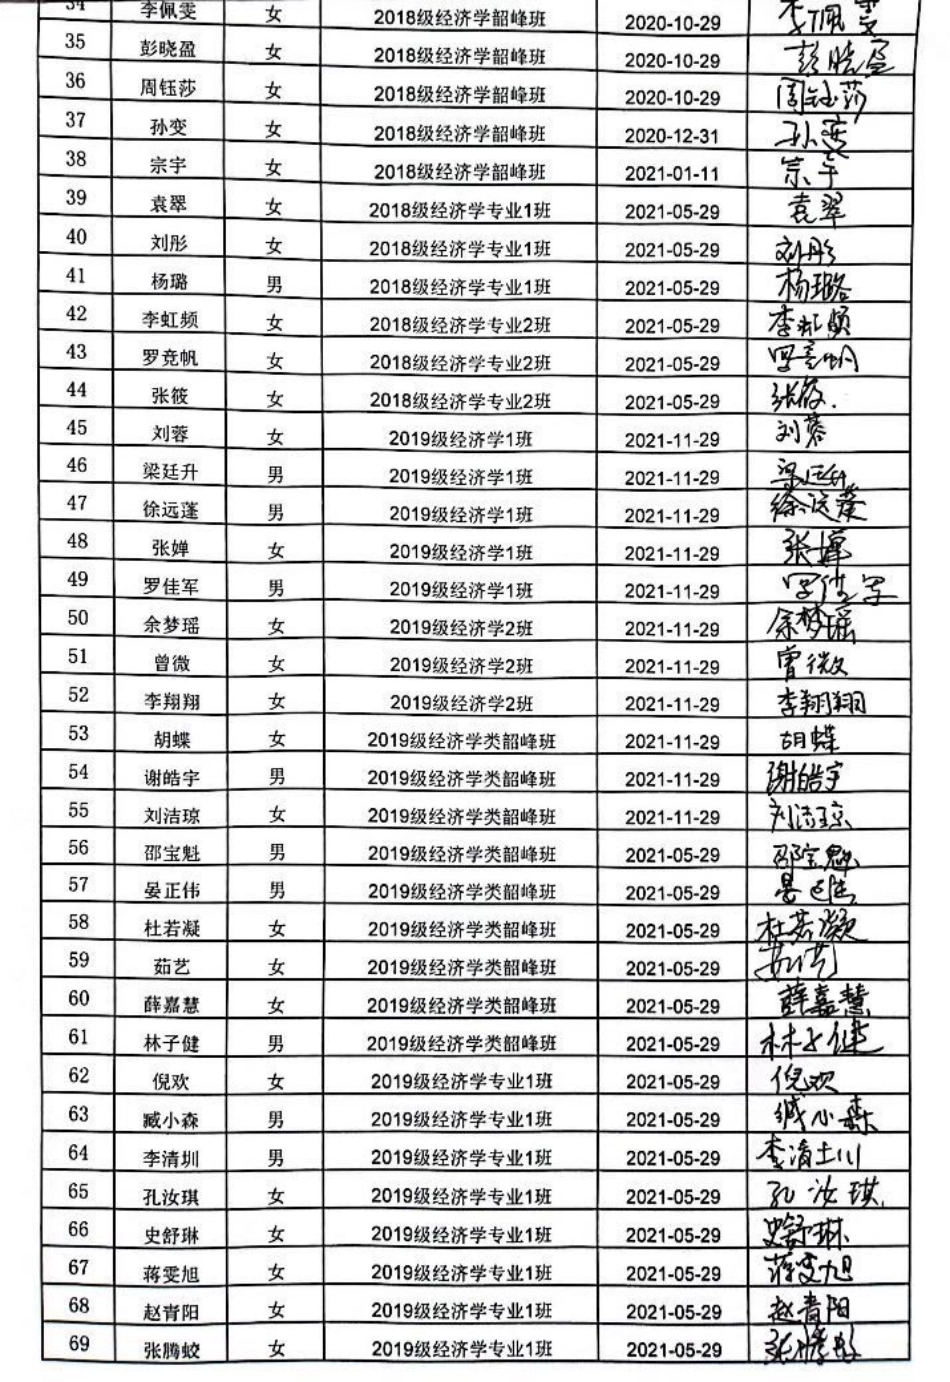 34 李佩雯 女 2018级经济学韶峰班 2020-10-29 李佩雯
35 彭晓盈 女 2018级经济学韶峰班 2020-10-29 彭晓盈
36 周钰莎 女 2018级经济学韶峰班 2020-10-29 周钰莎
37 孙变 女 2018级经济学韶峰班 2020-12-31 孙变
38 宗宇 女 2018级经济学韶峰班 2021-01-11 宗宇
39 袁翠 女 2018级经济学专业1班 2021-05-29 袁翠
40 刘彤 女 2018级经济学专业1班 2021-05-29 刘彤
41 杨璐 男 2018级经济学专业1班 2021-05-29 杨璐
42 李虹频 女 2018级经济学专业2班 2021-05-29 李虹频
43 罗竞帆 女 2018级经济学专业2班 2021-05-29 罗竞帆
44 张筱 女 2018级经济学专业2班 2021-05-29 张筱.
45 刘蓉 女 2019级经济学1班 2021-11-29 刘蓉
46 梁廷升 男 2019级经济学1班 2021-11-29 梁廷升
47 徐远蓬 男 2019级经济学1班 2021-11-29 徐远蓬
48 张婵 女 2019级经济学1班 2021-11-29 张婵
49 罗佳军 男 2019级经济学1班 2021-11-29 罗佳军
50 余梦瑶 女 2019级经济学2班 2021-11-29 余梦瑶
51 曾微 女 2019级经济学2班 2021-11-29 曾微
52 李翔翔 女 2019级经济学2班 2021-11-29 李翔翔
53 胡蝶 女 2019级经济学类韶峰班 2021-11-29 胡蝶
54 谢皓宇 男 2019级经济学类韶峰班 2021-11-29 谢皓宇
55 刘洁琼 女 2019级经济学类韶峰班 2021-11-29 刘洁琼
56 邵宝魁 男 2019级经济学类韶峰班 2021-05-29 邵宝魁
57 晏正伟 男 2019级经济学类韶峰班 2021-05-29 晏正伟
58 杜若凝 女 2019级经济学类韶峰班 2021-05-29 杜若凝
59 茹艺 女 2019级经济学类韶峰班 2021-05-29 茹艺
60 薛嘉慧 女 2019级经济学类韶峰班 2021-05-29 薛嘉慧
61 林子健 男 2019级经济学类韶峰班 2021-05-29 林子健
62 倪欢 女 2019级经济学专业1班 2021-05-29 倪欢
63 臧小森 男 2019级经济学专业1班 2021-05-29 臧小森
64 李清圳 男 2019级经济学专业1班 2021-05-29 李清圳
65 孔汝琪 女 2019级经济学专业1班 2021-05-29 孔汝琪
66 史舒琳 女 2019级经济学专业1班 2021-05-29 史舒琳
67 蒋雯旭 女 2019级经济学专业1班 2021-05-29 蒋雯旭
68 赵青阳 女 2019级经济学专业1班 2021-05-29 赵青阳
69 张腾蛟 女 2019级经济学专业1班 2021-05-29 张腾蛟